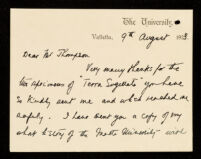 The University,
Valletta, 9th August 193
Dear Mr Thompson
Very many thanks for the
specimens of "Terra Sigillata" you have
so kindly sent me and which reached me
safely. I have sent you a copy of my
of the Malta University with